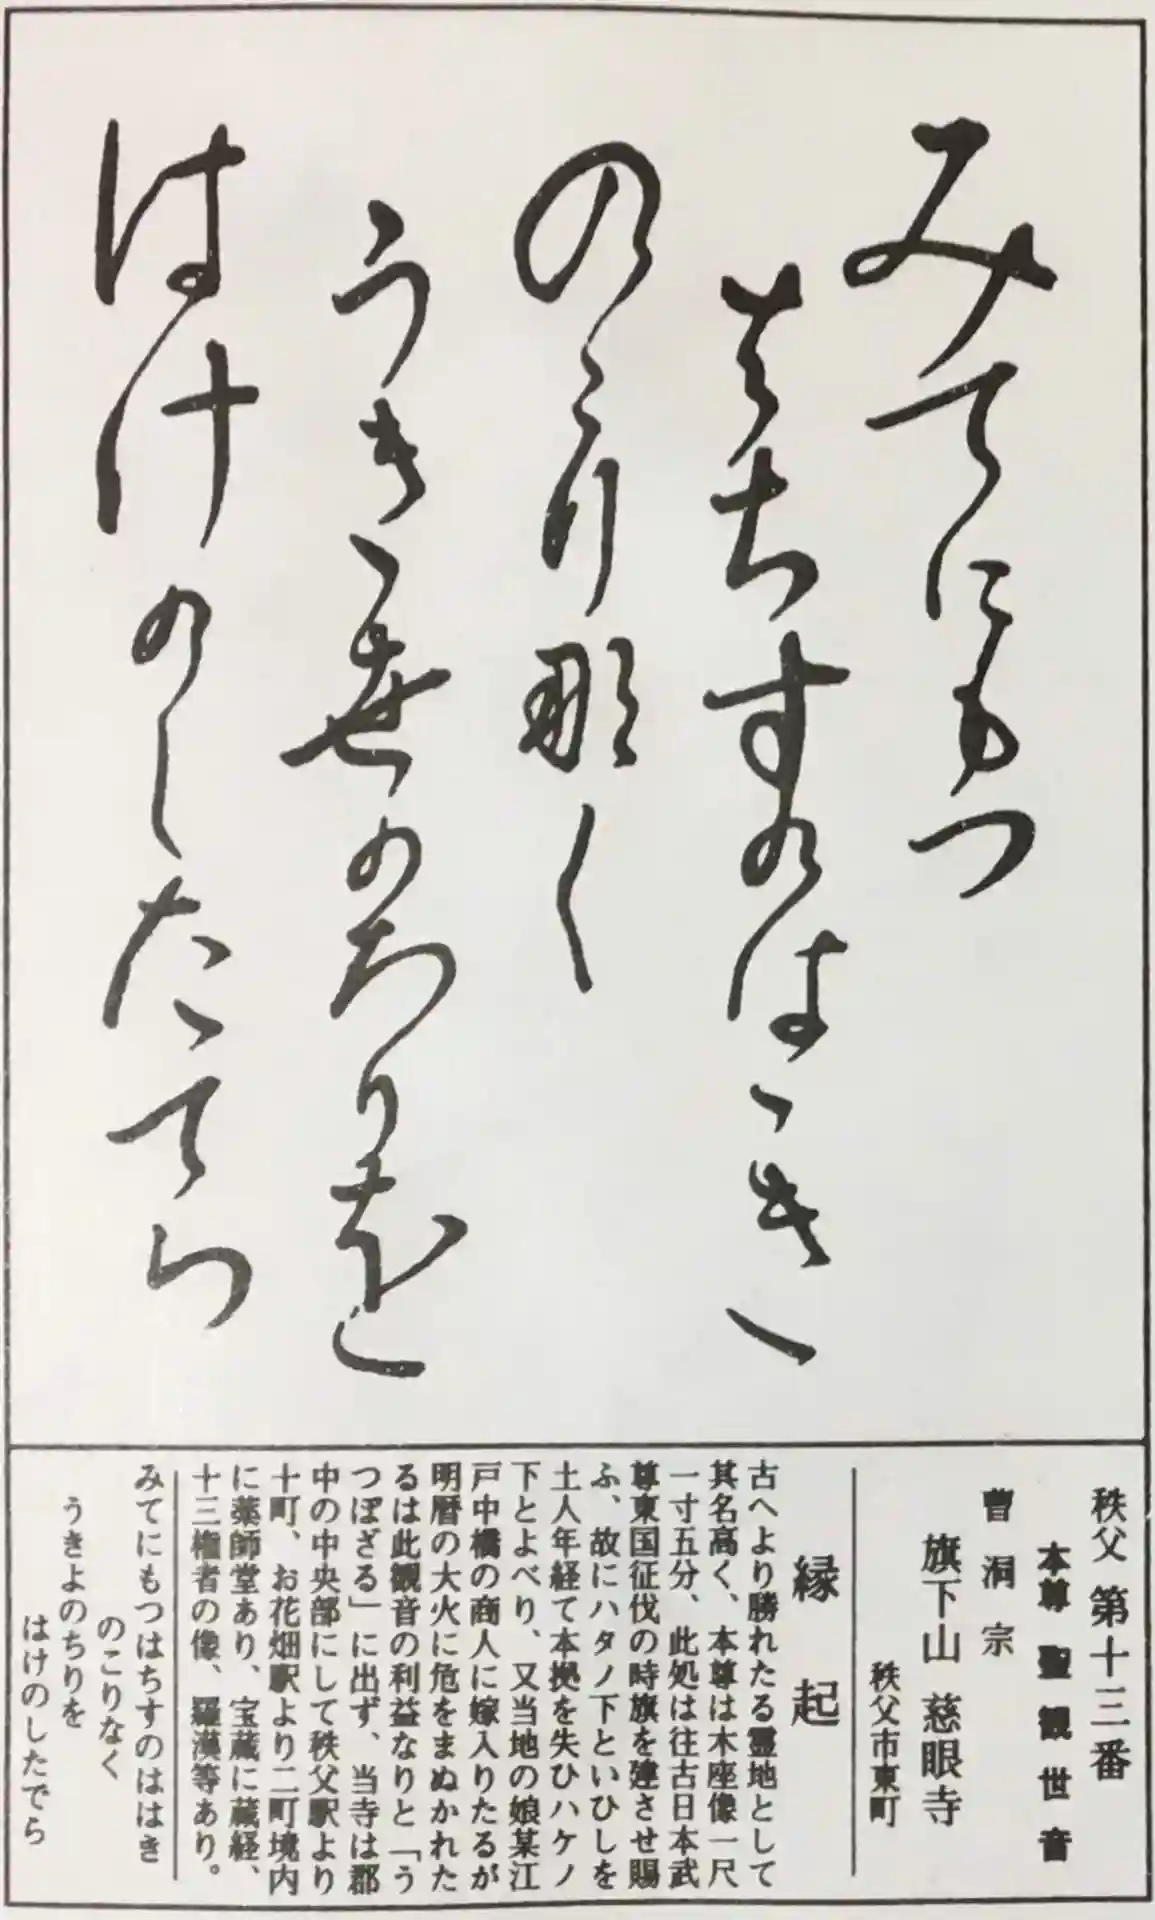 みてにもつ
はちすのはゝき
のこり那く
うきよのちりを
はけのしたてら
秩父 第十三番
本尊 聖観世音
曹洞宗
旗下山 慈眼寺
秩父市東町
縁起
古へより勝れたる霊地として
其名高く、本尊は木座像一尺
一寸五分、此処は往古日本武
尊東国征伐の時旗を建させ賜
ふ、故にハタノ下といひしを
土人年経て本拠を失ひハケノ
下とよべり、又当地の娘某江
戸中橋の商人に嫁入りたるが
明暦の大火に危をまぬかれた
るは此観音の利益なりと「う
つぼざる」に出ず、当寺は郡
中の中央部にして秩父駅より
十町、お花畑駅より二町境内
に薬師堂あり、宝蔵に蔵経、
十三権者の像、羅漢等あり。
みてにもつはちすのははき
のこりなく
うきよのちりを
はけのしたでら